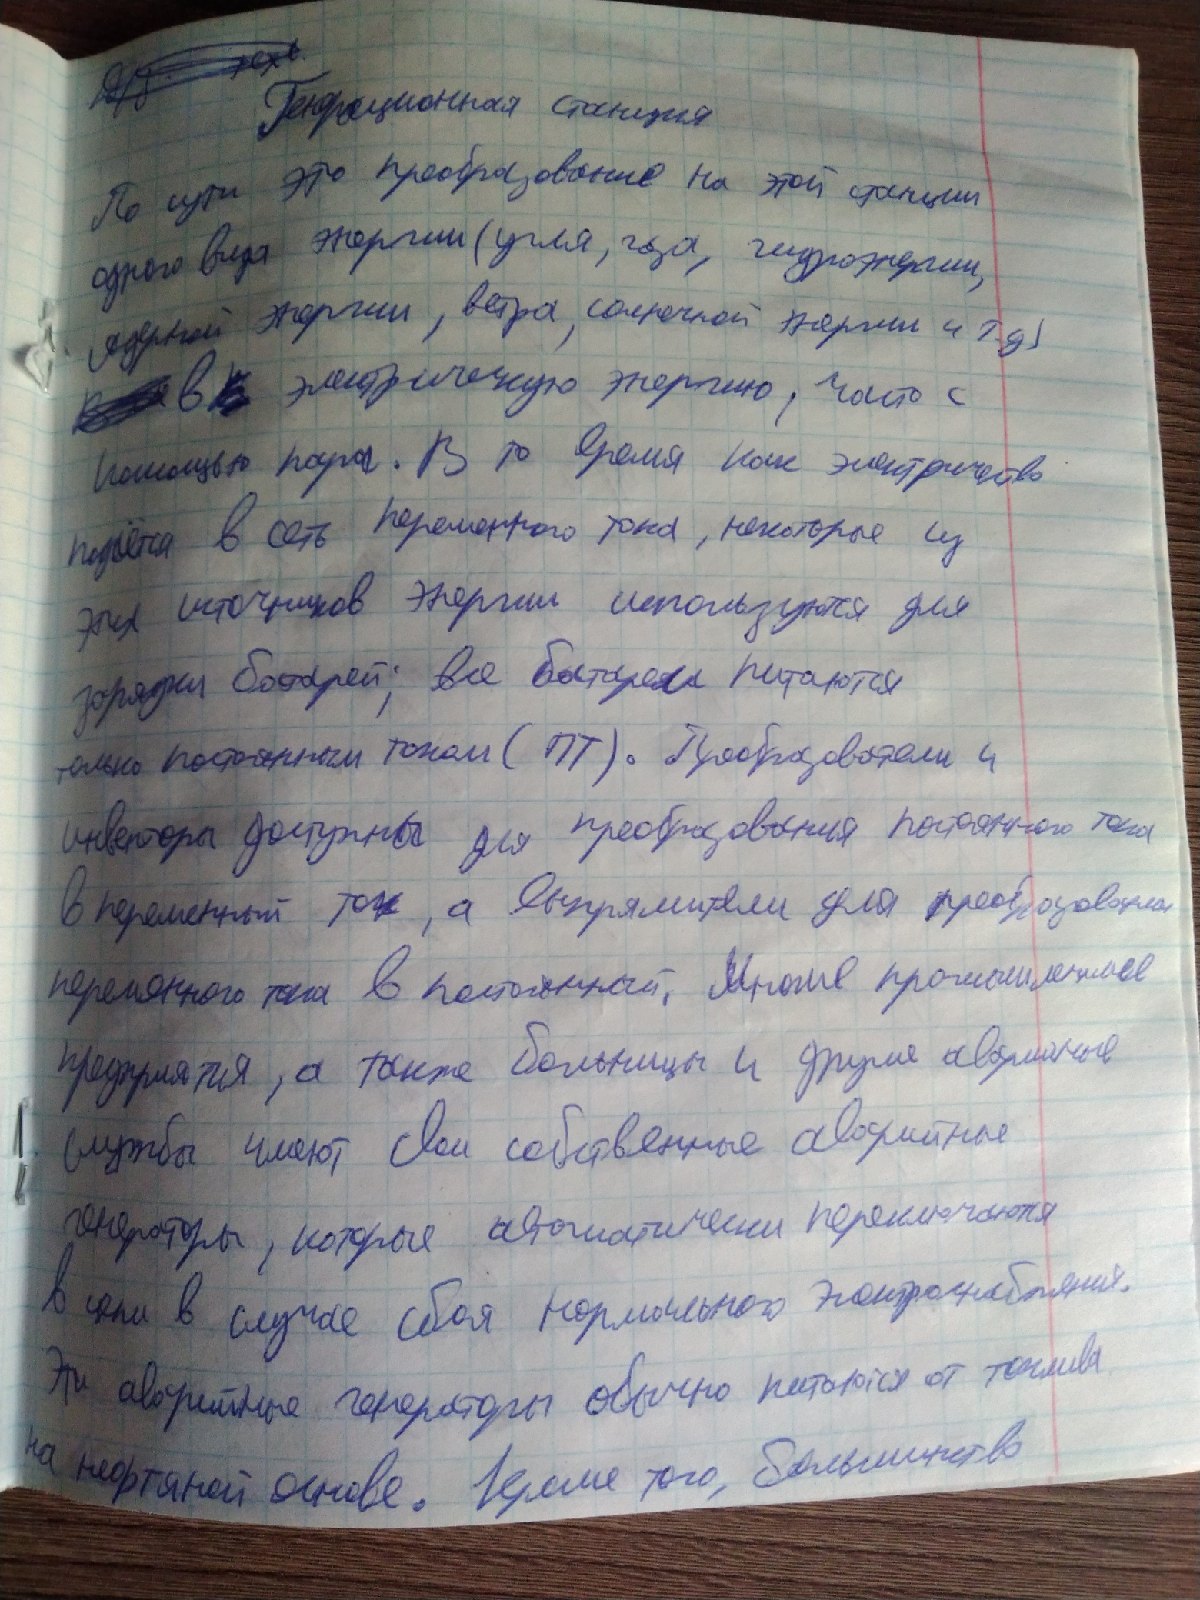 Генерационная станция
По сути это преобразование на этой станции
одного вида энергии (угля, газа, гидроэнергии,
ядерной энергии, ветра, солнечной энергии и т.д)
в электрическую энергию, часто с
помощью пара. В то время как электричество
подаётся в сеть переменного тока, некоторые из
этих источников энергии используются для
зарядки батарей; все батареи питаются
только постоянным током (ПТ). Преобразователи и
инвекторы доступны для преобразования постоянного тока
в переменный ток, а выпрямители для преобразования
переменного тока в постоянный. Многие промышленные
предприятия, а также больницы и другие аварийные
службы имеют свои собственные аварийные
генераторы, которые автоматически переключаются
в цепи в случае сбоя нормального электроснабжения.
Эти аварийные генераторы обычно питаются от топлива
на нефтяной основе. Кроме того, большинство